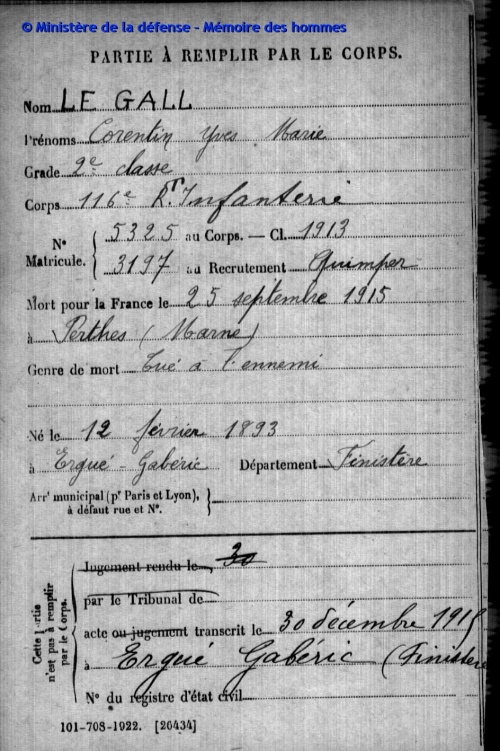 © Ministère de la défense - Mémoire des hommes
PARTIE À REMPLIR PAR LE CORPS.
Nom LE GALL
Prénoms Corentin Yves Marie
Grade 2e classe
Corps 116e Rt Infanterie
N° Matricule. 5325 au Corps. — Cl. 1913
3197 au Recrutement Quimper
Mort pour la France le 25 septembre 1915
à Perthes (Marne)
Genre de mort Tué à l'ennemi
Né le 12 février 1893
à Ergué-Gabéric Département Finistère
Arrt municipal (pr Paris et Lyon),
à défaut rue et N°.
Cette partie n'est pas à remplir par le Corps.
Jugement rendu le 30
par le Tribunal de
acte ou jugement transcrit le 30 décembre 1915
à Ergué Gabéric (Finistère
N° du registre d'état civil
101-708-1922. [26434]